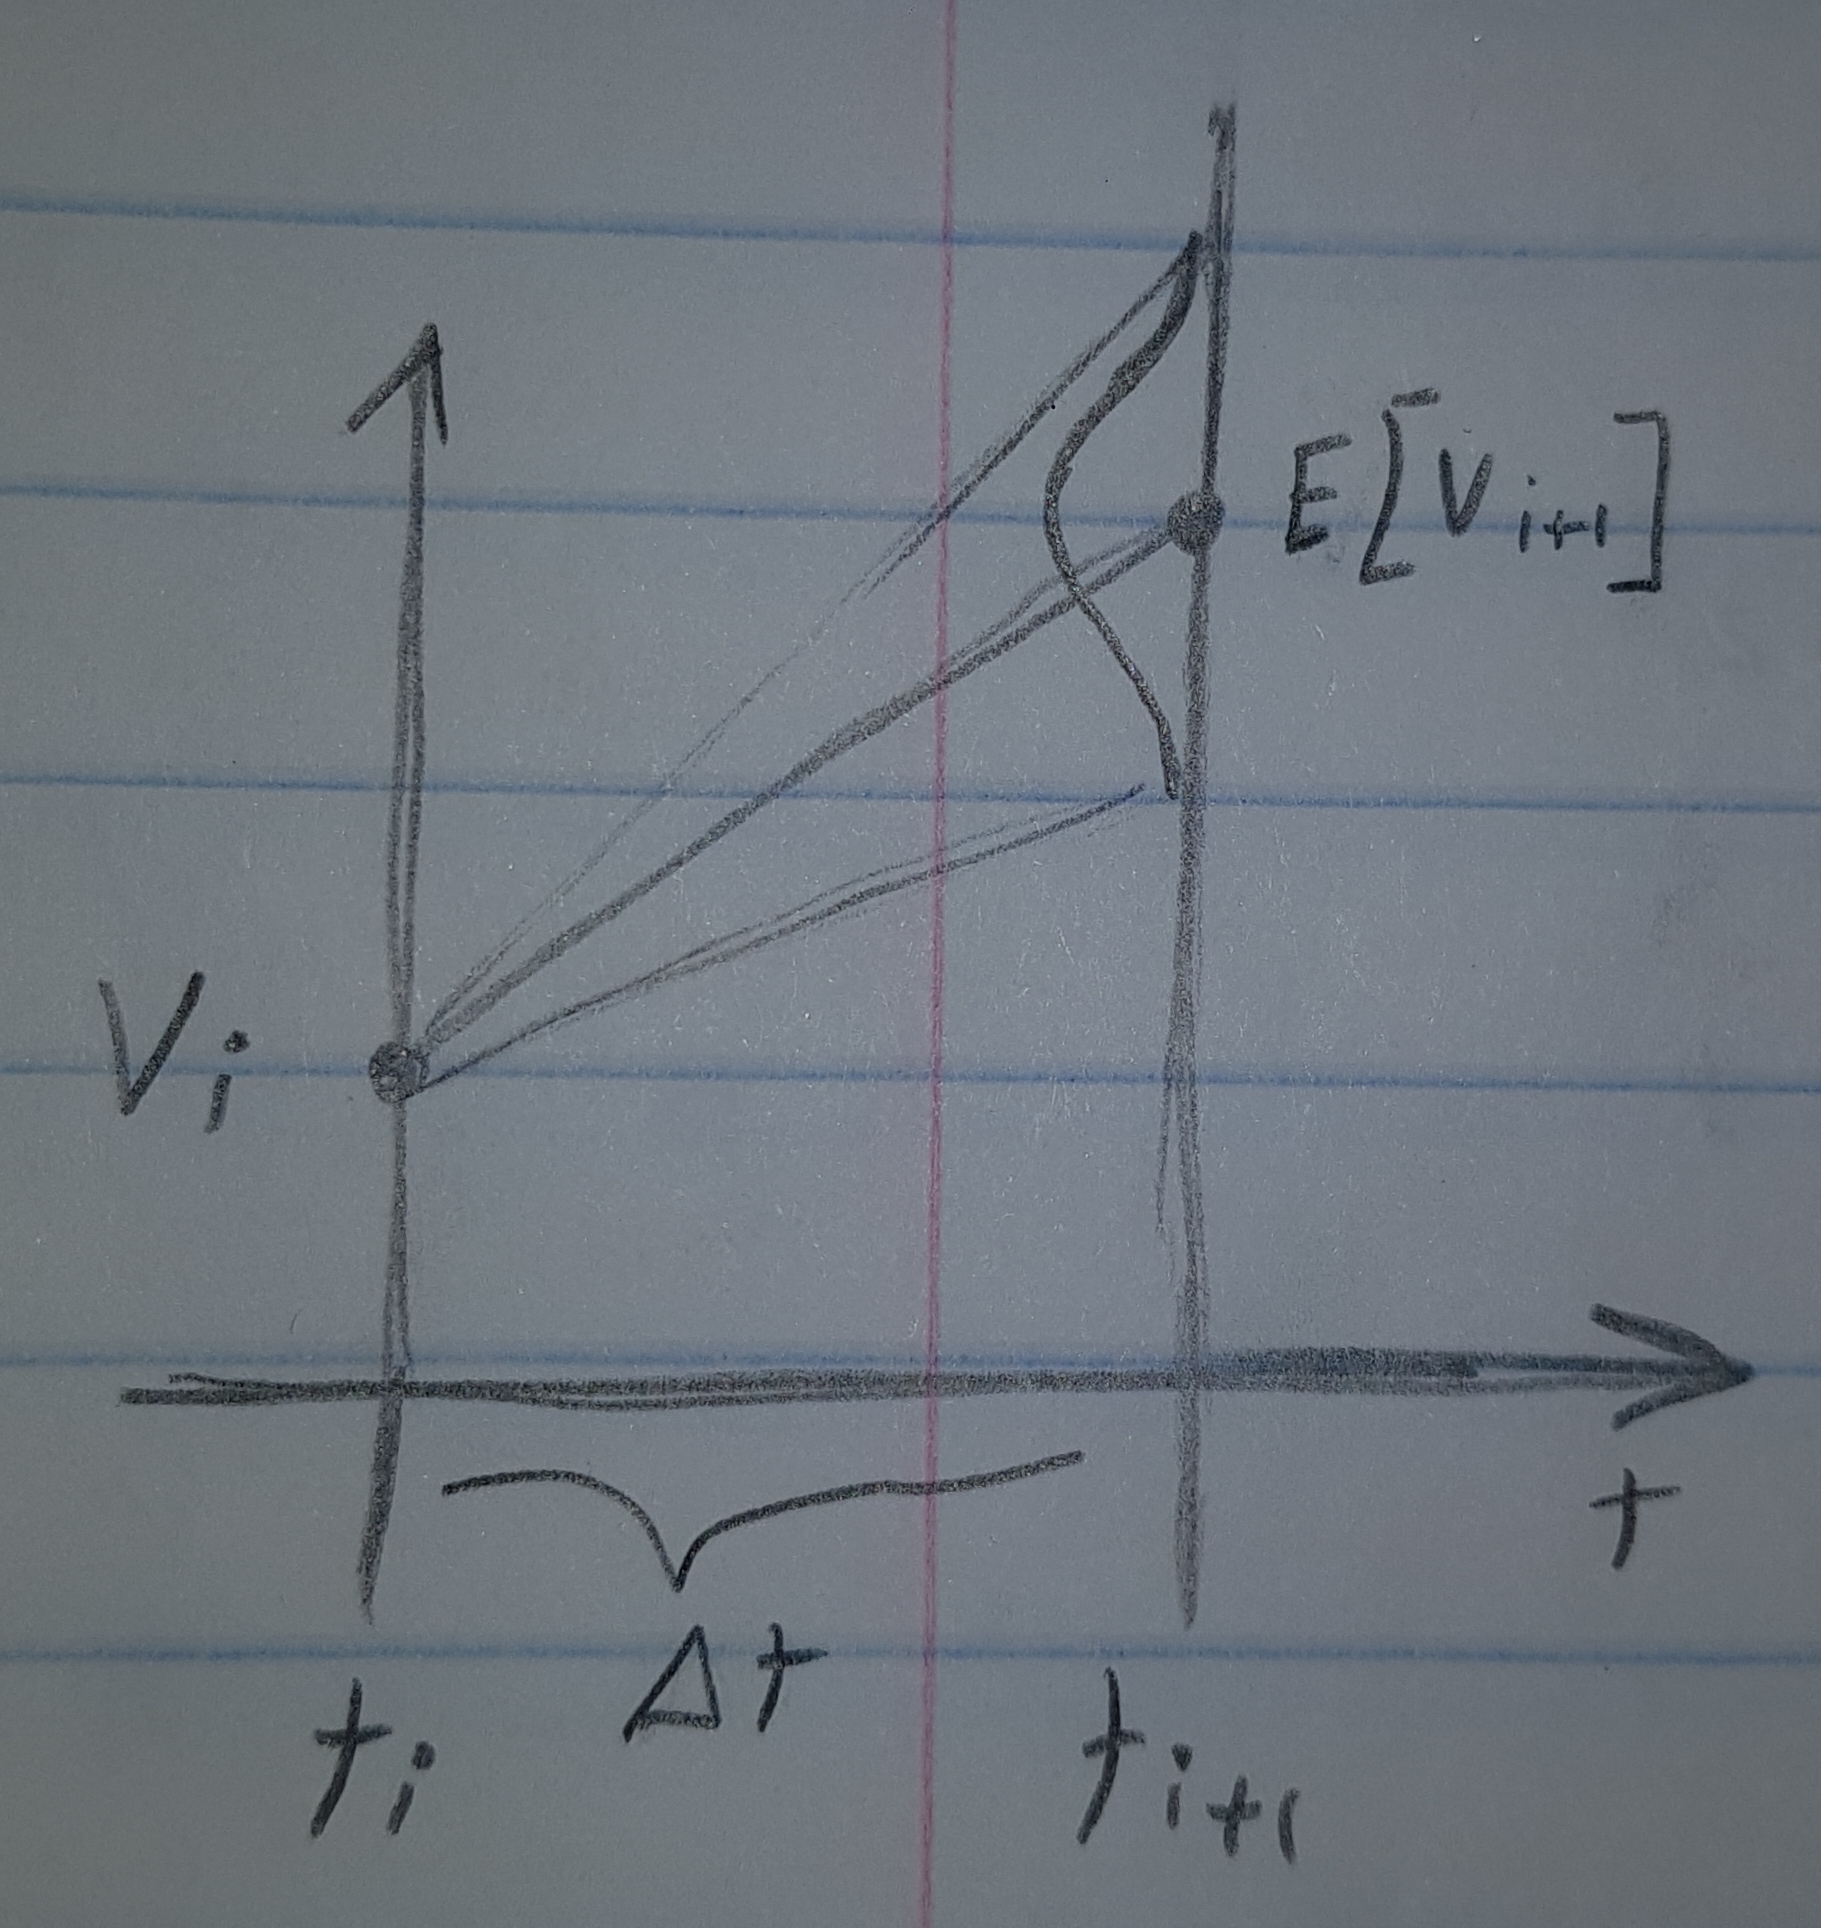 E[V i+1]
V i
t
Δt
t i
t i+1